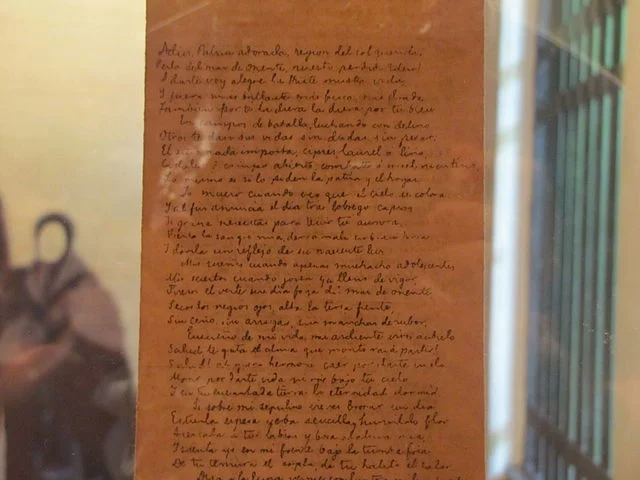 Adios, Patria adorada, region del sol querida,
Perla del mar de Oriente, nuestro perdido Eden!
A darte voy alegre la triste mustia vida,
Y fuera más brillante más fresca, más florida
Tambien por ti la diera la diera por tu bien
En campos de batalla, luchando con delirio
Otros te dan sus vidas sin dudas, sin pesar;
El sitio nada importa, cipres laurel o lirio,
Cadalso o campo abierto, combate o cruel martirio
Lo mismo es si lo piden la patria y el hogar
Yo muero cuando veo que el cielo se colora
Y al fin anuncia el dia tras lobrego capuz
Si grana necesitas para teñir tu aurora,
Vierte la sangre mia, derramala en buen hora
Y dorela un reflejo de su naciente luz
Mis sueños cuando apenas muchacho adolescente
Mis sueños cuando joven ya lleno de vigor
Fueron el verte un dia joya del mar de oriente
Secos los negros ojos, alta la tersa frente,
Sin ceño, sin arrugas, sin manchas de rubor,
Ensueño de mi vida, mi ardiente vivo anhelo
Salud te grita el alma que pronto va a partir!
Salud! ah que es hermoso caer por darte vuelo
Morir por darte vida morir bajo tu cielo
Y en tu encantada tierra la eternidad dormir
Si sobre mi sepulcro vieres brotar un dia
Entre la espesa yerba sencilla, humilde flor
Acercala a tus labios y besa al alma mia
Y sienta yo en mi frente bajo la tumba fria
De tu ternura el soplo, de tu halito el calor
Deja a la luna verme con luz